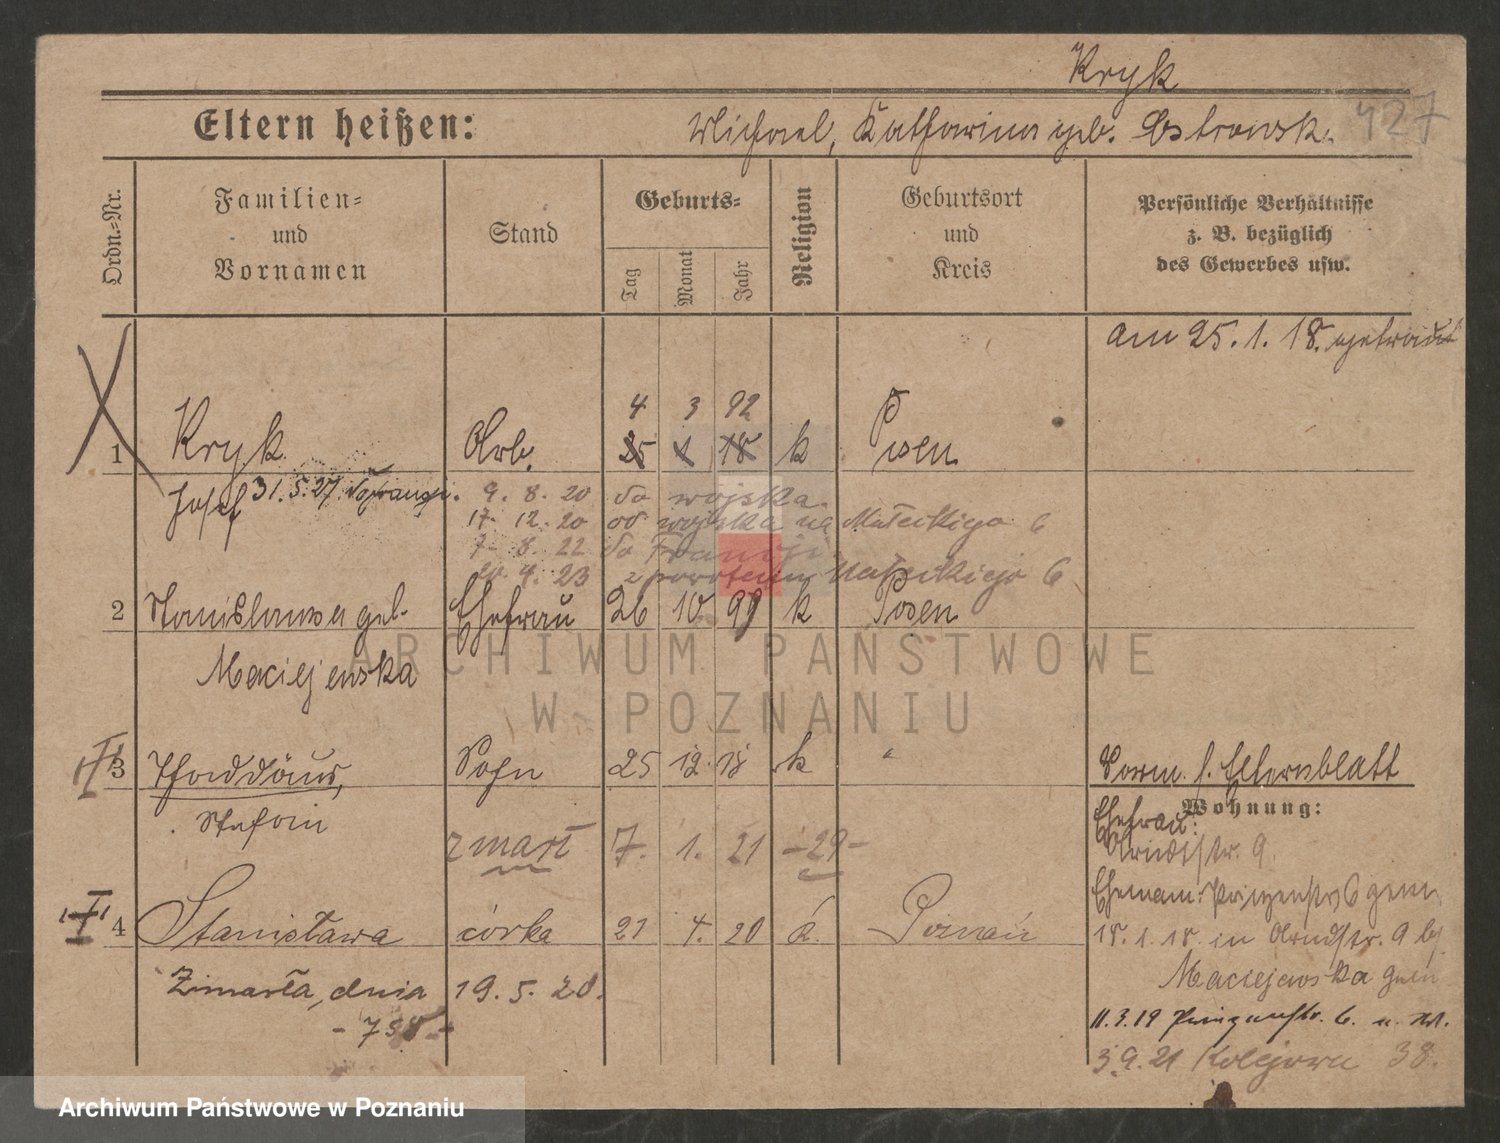 Kryk
427
Eltern heißen: Michael, Katharina geb. Ostrowsk.
Ordn.-Nr.
Familien-
und
Vornamen
Stand
Geburts-
Tag
Monat
Jahr
Religion
Geburtsort
und
Kreis
Persönliche Verhältnisse
z. B. bezüglich
des Gewerbes usw.
am 25. 1. 18. getraut
4 3 92
1 Kryk Arb. 25 1 18 k Posen
Josef 31. 5. 27. do Francji. 9. 8. 20 do wojska
17. 12. 20 od wojska na Małeckiego 6
7. 8. 22 do Francji
4. 23 z powrotem Małeckiego 6
2 Stanislawa geb. Ehefrau 26 10 99 k Posen
Maciejewska
ARCHIWUM PAŃSTWOWE
W POZNANIU
3 Thaddäus, Sohn 25 12 18 k "
Stefan
Vorm. s. Elternblatt
Wohnung:
Ehefrau:
Arndtstr. 9
zmarł 7. 1. 21 -29-
Ehemann: Prinzenstr 6 gem.
4 Stanisława córka 21 4. 20 k. Poznań
18. 1. 18. in Arndtstr. 9 bj
Zmarła, dnia 19. 5. 20.
- 758 -
Maciejewska gem
11. 3. 19 Prinzenstr. 6. u. Wl.
3. 9. 21 Kolejowa 38.
Archiwum Państwowe w Poznaniu